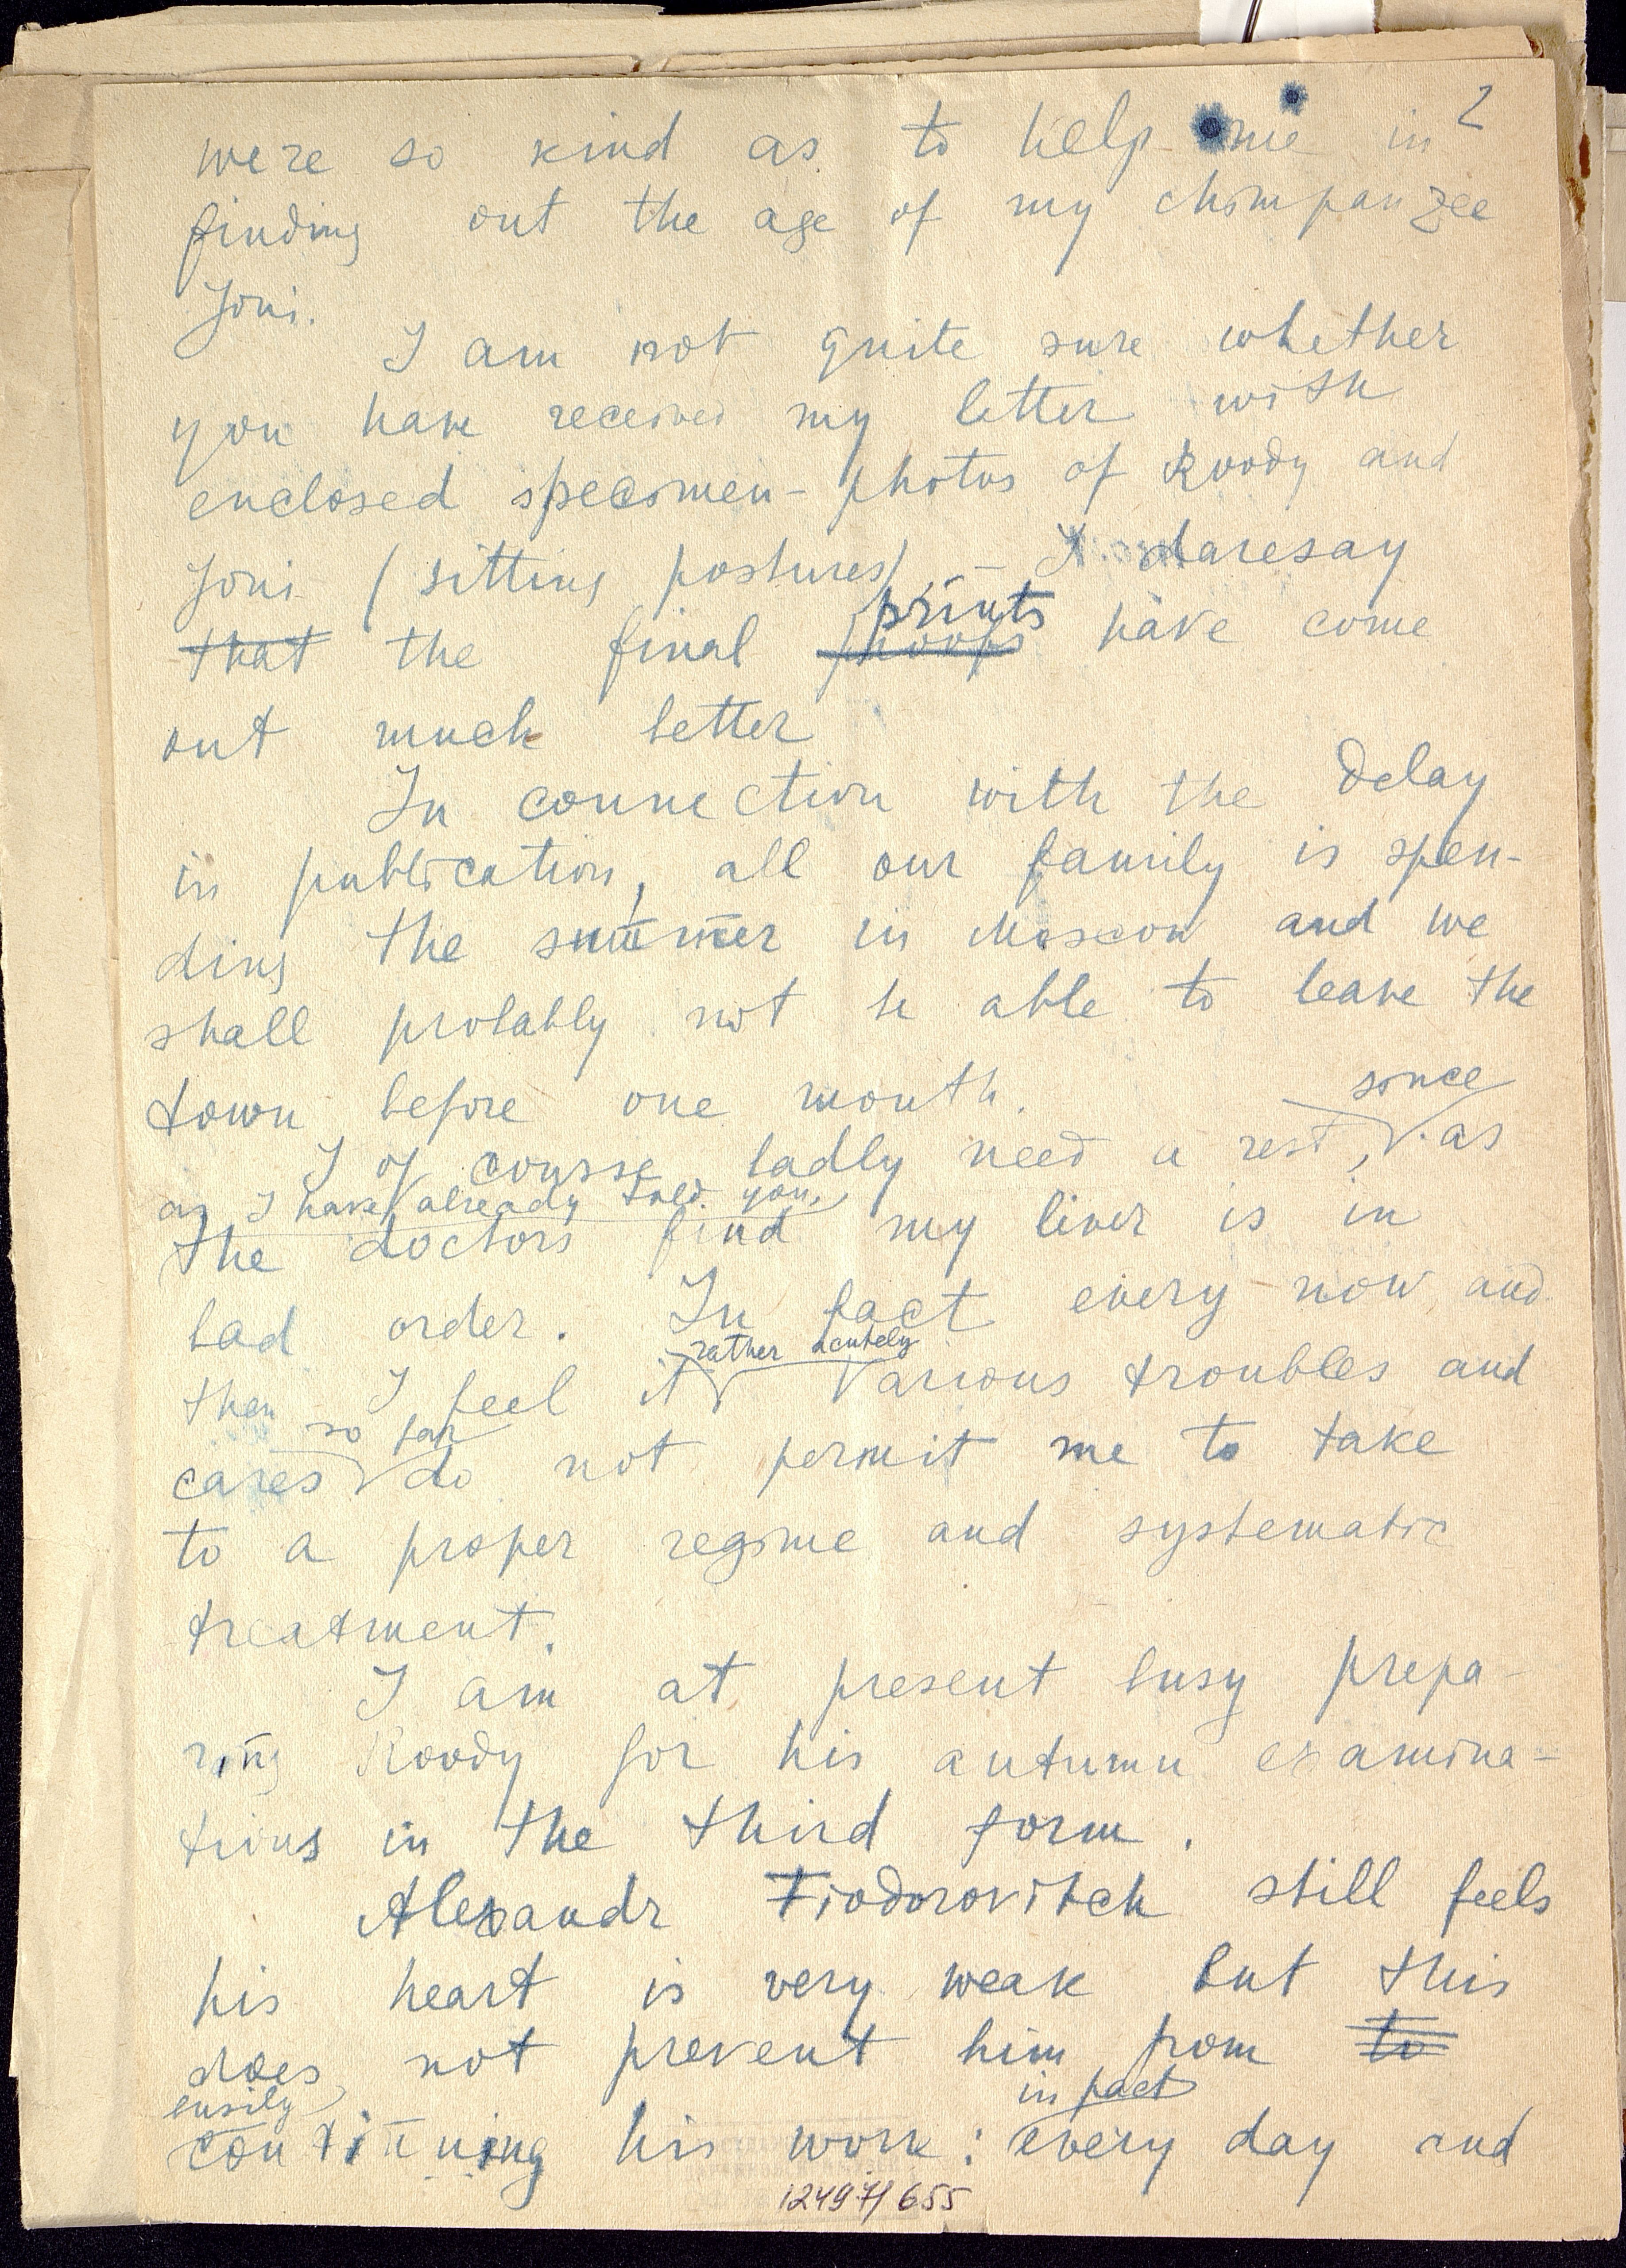 2
were so kind as to help me in
finding out the age of my chimpanzee
Joni.
I am not quite sure whether
you have received my letter with
enclosed specimen- photos of Roody and
Joni (sitting postures) - I daresay
that the final proofs prints have come
out much better
In connection with the delay
in publication, all our family is spen-
ding the summer in Moscow and we
shall probably not be able to leave the
town before one month.
since
I of course badly need a rest, as
as I have already told you,
the doctors find my liver is in
bad order. In fact every now and
rather acutely
then I feel it Various troubles and
so far
cares do not permit me to take
to a proper regime and systematic
treatment.
I am at present busy prepa-
ring Roody for his autumn examina-
tions in the third form.
Alexandr Fiodorovitch still feels
his heart is very weak but this
does not prevent him from to
easily in fact
continuing his work: every day and
12497/655